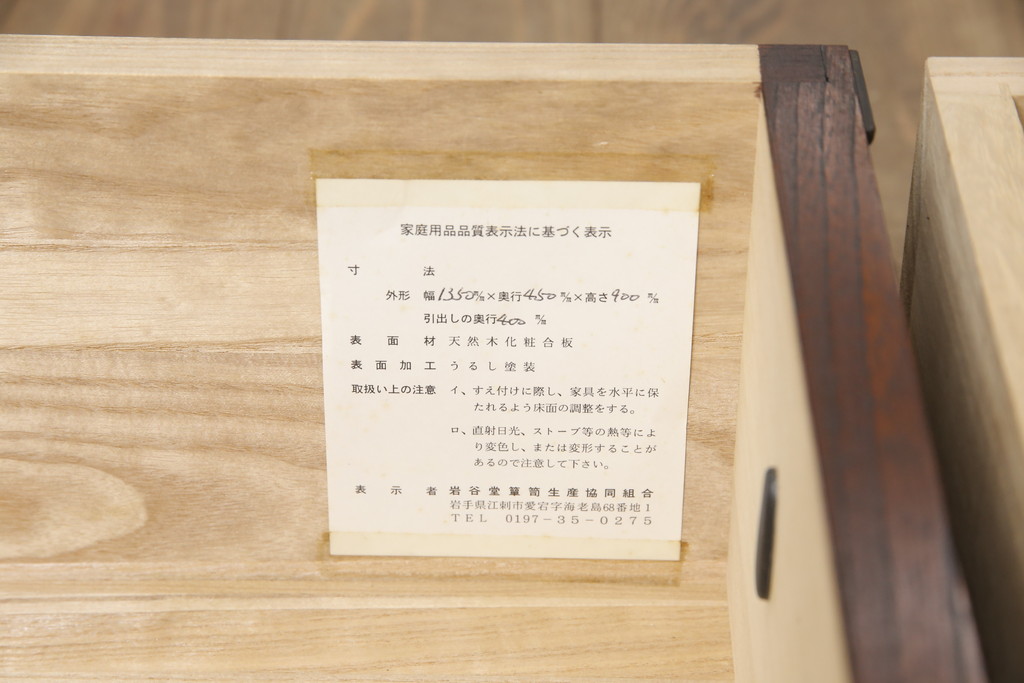 家庭用品品質表示法に基づく表示
寸法
外形 幅1350㎜×奥行450㎜×高さ900㎜
引出しの奥行400㎜
表面材 天然木化粧合板
表面加工 うるし塗装
取扱い上の注意 イ、すえ付けに際し、家具を水平に保
たれるよう床面の調整をする。
ロ、直射日光、ストーブ等の熱等によ
り変色し、または変形することが
あるので注意して下さい。
表示者 岩谷堂箪笥生産協同組合
岩手県江刺市愛宕字海老島68番地1
TEL 0197-35-0275